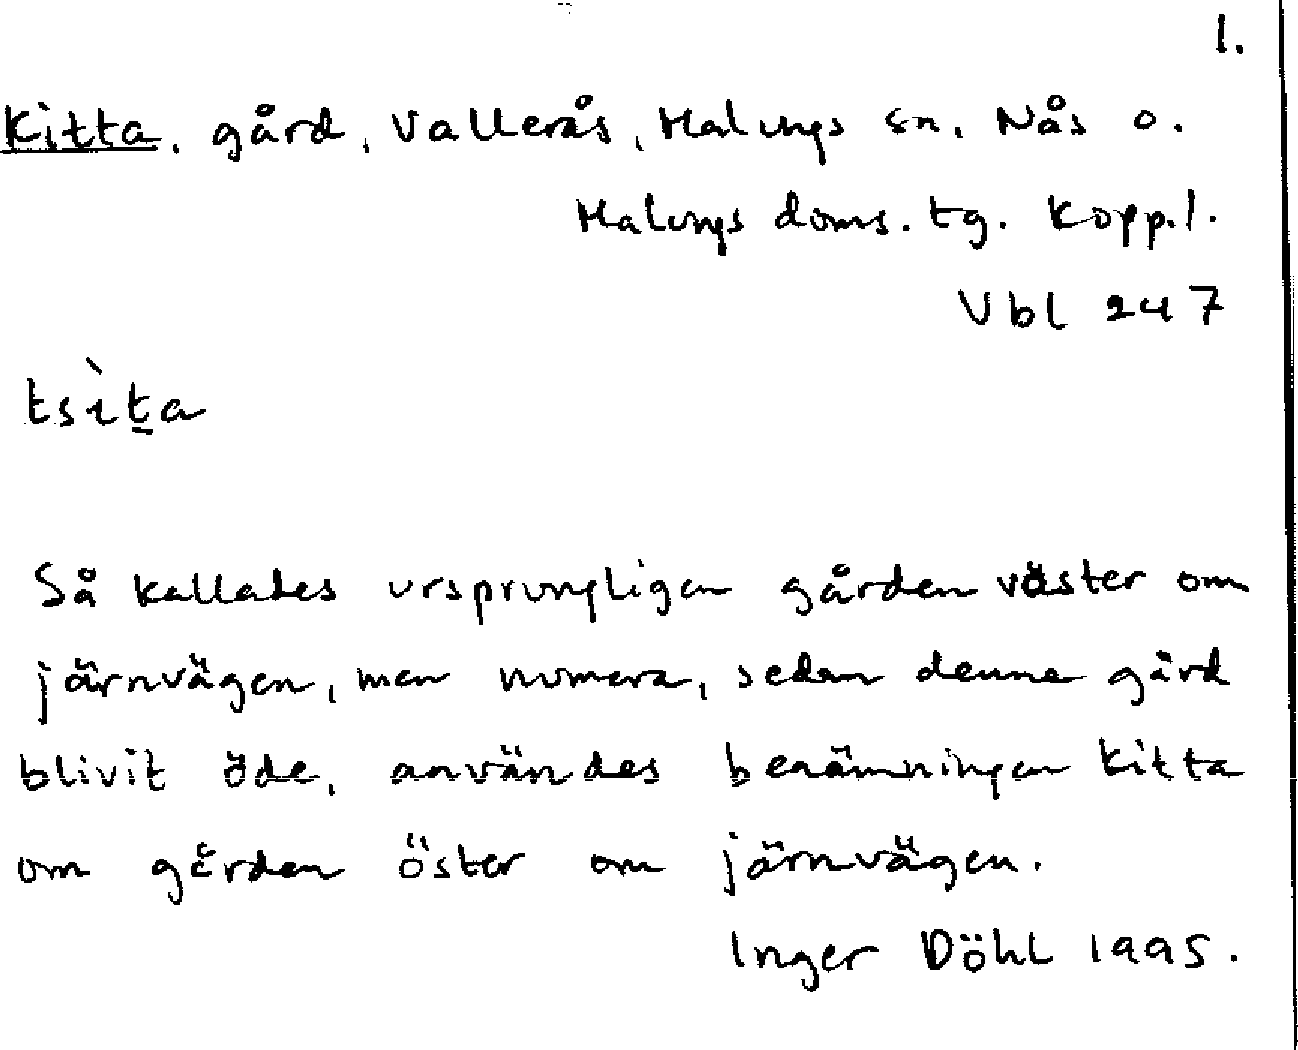 1.
Kitta, gård, Vallerås, Malungs sn. Nås o.
Malungs doms. tg. Kopp.l.
Vbl 247
tsìt̠a
Så kallades ursprungligen gården väster om
järnvägen, men numera, sedan denna gård
blivit öde, användes benämningen Kitta
om gården öster om järnvägen.
Inger Döhl 1995.